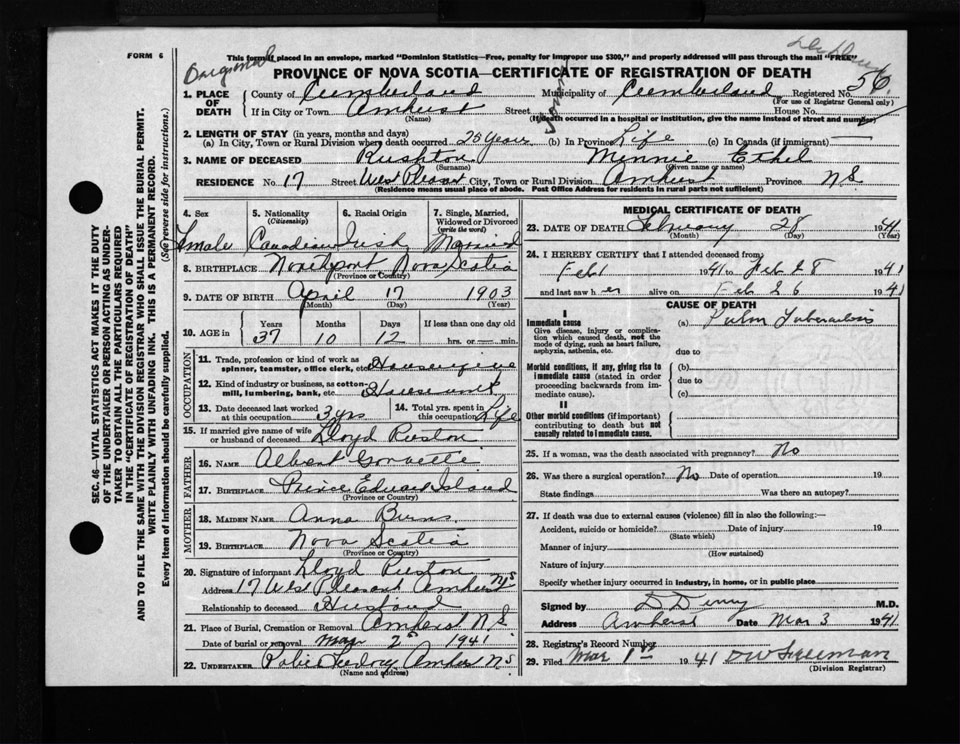 FORM 6
This form if placed in an envelope, marked "Dominion Statistics—Free, penalty for improper use $300," and properly addressed will pass through the mail "FREE"
PROVINCE OF NOVA SCOTIA—CERTIFICATE OF REGISTRATION OF DEATH
1. PLACE OF DEATH
County of Cumberland Municipality of Cumberland Registered No. 56
(For use of Registrar General only)
If in City or Town Amherst Street House No.
(Name) (If death occurred in a hospital or institution, give the name instead of street and number)
2. LENGTH OF STAY (in years, months and days)
(a) In City, Town or Rural Division where death occurred 20 years (b) In Province Life (c) In Canada (if immigrant)
3. NAME OF DECEASED Rushton Minnie Ethel
(Surname) (Given name or names)
RESIDENCE No. 17 Street West Pleasant City, Town or Rural Division Amherst Province N.S.
(Residence means usual place of abode. Post Office Address for residents in rural parts not sufficient)
4. Sex Female
5. Nationality (Citizenship) Canadian
6. Racial Origin Irish
7. Single, Married, Widowed or Divorced (write the word) Married
8. BIRTHPLACE Northport Nova Scotia
(Province or Country)
9. DATE OF BIRTH April 17 1903
(Month) (Day) (Year)
10. AGE in Years 37 Months 10 Days 12 If less than one day old hrs. or min.
OCCUPATION
11. Trade, profession or kind of work as spinner, teamster, office clerk, etc.
12. Kind of industry or business, as cotton-mill, lumbering, bank, etc. Housework
13. Date deceased last worked at this occupation 3 yrs
14. Total yrs. spent in this occupation Life
15. If married give name of wife or husband of deceased Lloyd Ruston
FATHER
16. NAME Albert
17. BIRTHPLACE Prince Edward Island
(Province or Country)
MOTHER
18. MAIDEN NAME Anna Burns
19. BIRTHPLACE Nova Scotia
(Province or Country)
20. Signature of informant Lloyd Ruston
Address 17 West Pleasant Amherst NS
Relationship to deceased Husband
21. Place of Burial, Cremation or Removal Amherst N.S.
Date of burial or removal Mar 2 1941
22. UNDERTAKER Amherst NS
(Name and address)
MEDICAL CERTIFICATE OF DEATH
23. DATE OF DEATH February 28 1941
(Month) (Day) (Year)
24. I HEREBY CERTIFY that I attended deceased from:
Feb 1 1941 to Feb 28 1941
and last saw her alive on Feb 26 1941
CAUSE OF DEATH
I
Immediate cause
Give disease, injury or complication which caused death, not the mode of dying, such as heart failure, asphyxia, asthenia, etc.
(a) Pulm Tuberculosis
due to
Morbid conditions, if any, giving rise to immediate cause (stated in order proceeding backwards from immediate cause).
(b)
due to
(c)
II
Other morbid conditions (if important) contributing to death but not causally related to immediate cause.
25. If a woman, was the death associated with pregnancy? No
26. Was there a surgical operation? No Date of operation 19
State findings Was there an autopsy?
27. If death was due to external causes (violence) fill in also the following:—
Accident, suicide or homicide? Date of injury 19
(State which)
Manner of injury
(How sustained)
Nature of injury
Specify whether injury occurred in industry, in home, or in public place
Signed by M.D.
Address Amherst Date Mar 3 1941
28. Registrar's Record Number
29. Filed Mar 1st 1941
(Division Registrar)
SEC. 46—VITAL STATISTICS ACT MAKES IT THE DUTY
OF THE UNDERTAKER OR PERSON ACTING AS UNDERTAKER TO OBTAIN ALL THE PARTICULARS REQUIRED
IN THE "CERTIFICATE OF REGISTRATION OF DEATH"
AND TO FILE THE SAME WITH THE DIVISION REGISTRAR WHO SHALL ISSUE THE BURIAL PERMIT.
WRITE PLAINLY WITH UNFADING INK. THIS IS A PERMANENT RECORD.
Every item of information should be carefully supplied. (See reverse side for instructions.)